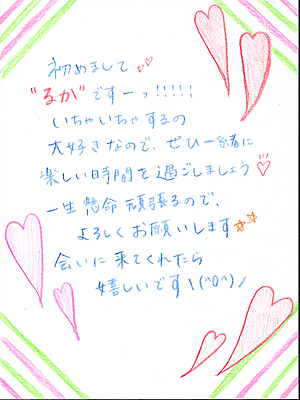 初めまして♡♡
"るか"ですーっ!!!!!
いちゃいちゃするの
大好きなので、ぜひ一緒に
楽しい時間を過ごしましょう♡
一生懸命頑張るので、
よろしくお願いします☆☆
会いに来てくれたら
嬉しいです\(^o^)/